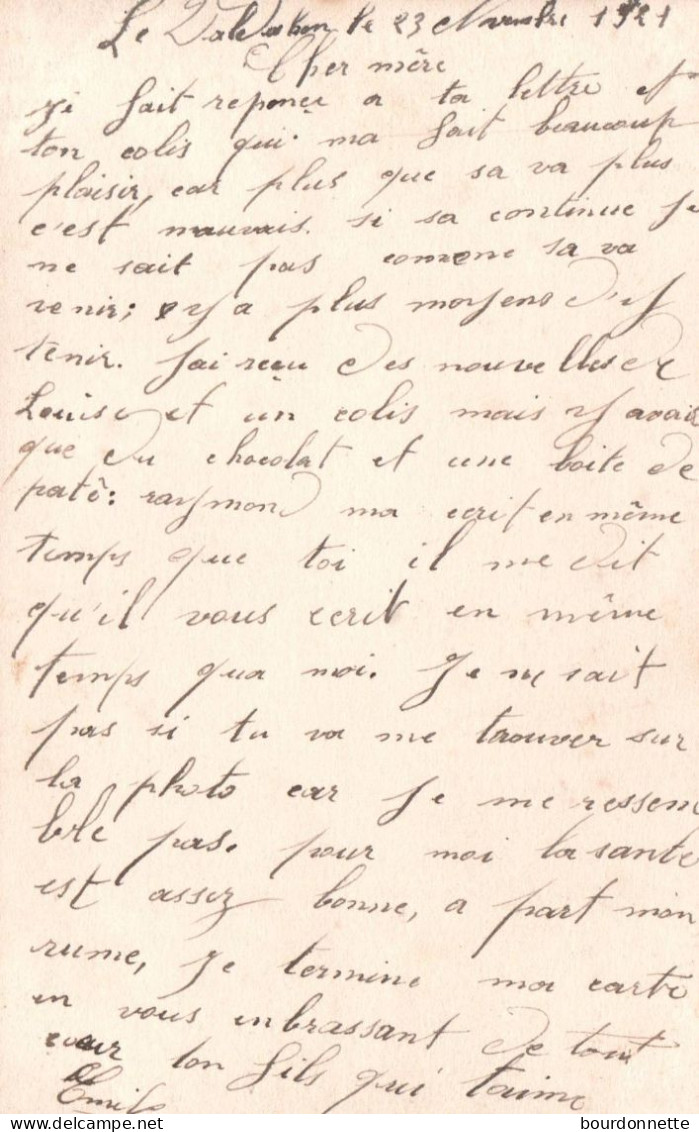 Le Valdahon le 23 Novembre 1921
Cher mère
Je fait reponce a ta lettre et
ton colis qui ma fait beaucoup
plaisir, car plus que sa va plus
c'est mauvais. si sa continue Je
ne sait pas comene sa va
venir; y a plus moyens d'y
tenir. Jai reçu des nouvelles de
Louise et un colis mais y avais
que du chocolat et une boite de
paté: raymond ma ecrit en même
temps que toi il me dit
qu'il vous ecrit en même
temps qua moi. Je ne sait
pas si tu va me trouver sur
la photo car Je me ressem
ble pas. pour moi la sante
est assez bonne, a part mon
rume, Je termine ma carte
en vous enbrassant de tout
cœur ton fils qui taime
Emile
bourdonnette